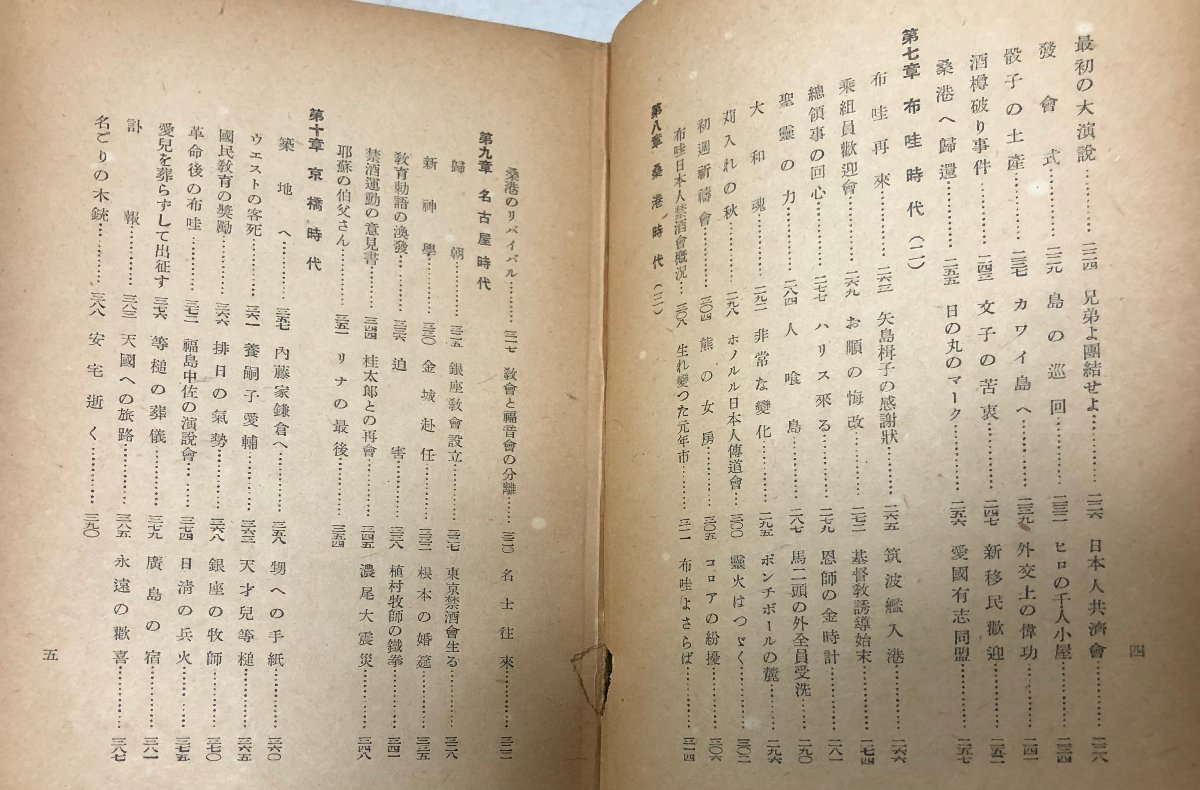 最初の大演説……二二四 兄弟よ團結せよ……二二六 日本人共濟會……二二八
發會式……二二九 島の巡回……二三二 ヒロの千人小屋……二三四
骰子の土產……二三七 カワイ島へ……二三九 外交上の偉功……二四一
酒樽破り事件……二四三 文子の苦衷……二四七 新移民歡迎……二五二
桑港へ歸還……二五五 日の丸のマーク……二五六 愛國有志同盟……二五七
第七章 布哇時代(二)
布哇再來……二六三 矢島楫子の感謝狀……二六五 筑波艦入港……二六六
乘組員歡迎會……二六九 お順の悔改……二七二 基督敎誘導始末……二七四
總領事の回心……二七七 ハリス來る……二七九 恩師の金時計……二八一
聖靈の力……二八四 人喰島……二八七 馬二頭の外全員受洗……二九〇
大和魂……二九二 非常な變化……二九五 ポンチボールの麓……二九六
刈入れの秋……二九八 ホノルル日本人傳道會……三〇〇 靈火はつゞく……三〇二
初週祈禱會……三〇四 熊の女房……三〇五 コロアの紛擾……三〇六
布哇日本人禁酒會槪況……三〇八 生れ變つた元年市……三一一 布哇よさらば……三一四
第八章 桑港時代(二)
四
桑港のリバイバル……三一七 敎會と福音會の分離……三二〇 名士往來……三二二
第九章 名古屋時代
歸朝……三二五 銀座敎會設立……三二七 東京禁酒會生る……三二八
新神學……三三〇 金城赴任……三三二 根本の婚筵……三三五
敎育勅語の渙發……三三六 迫害……三三八 植村牧師の鐵拳……三四一
禁酒運動の意見書……三四四 桂太郎との再會……三四五 濃尾大震災……三四八
耶蘇の伯父さん……三五一 リナの最後……三五四
第十章 京橋時代
築地へ……三五七 內藤家鎌倉へ……三五八 甥への手紙……三六〇
ウエストの客死……三六一 養嗣子愛輔……三六三 天才兒等槌……三六五
國民敎育の獎勵……三六六 排日の氣勢……三六八 銀座の牧師……三七〇
革命後の布哇……三七二 福島中佐の演說會……三七四 日淸の兵火……三七五
愛兒を葬らずして出征す 三七六 等槌の葬儀……三七九 廣島の宿……三八一
訃報……三八三 天國への旅路……三八五 永遠の歡喜……三八七
名ごりの木銃……三八八 安宅逝く……三九〇
五